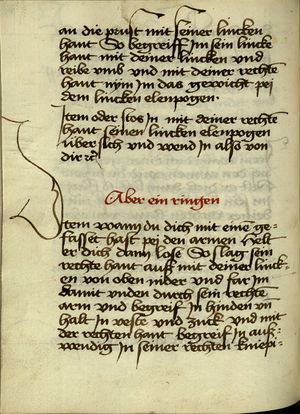 an die prust mit seiner lincken
hant So begreiff Im sein lincke
hant mit deiner lincken und
reibe vmb und mit deiner rechtē
hant nÿm im das gewicht pei
dem lincken elenpogen.
Item oder stos in mit deiner rechtē
hant seinen lincken elenpogen
über sich und wend In also von
dir ꝛc
Aber ein ringen
Item wann du dich mit einē ge-
fasset hast pei den armen Helt
er dich dann lose So slag sein
rechte hant auß mit deiner linck-
en von oben nider und far im
damit vnden durch sein rechtē
arm und begreif In hinden vn
halt In veste und zuck und mit
der rechten hant begreif In auß-
wendig In seiner rechten kniepi-